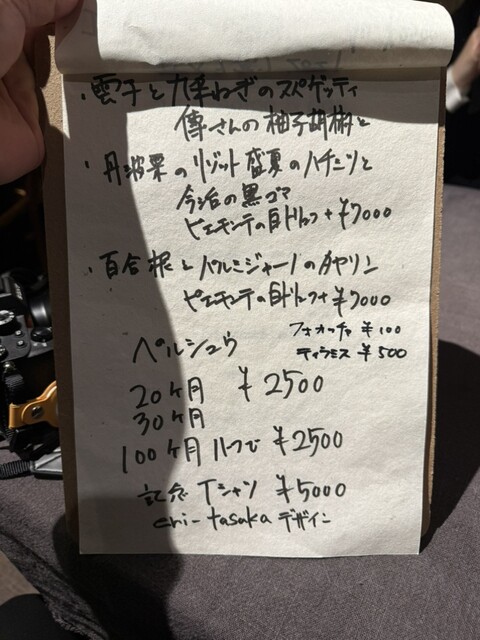 ・雲子と九条ねぎのスペゲッティ
傳さんの柚子胡椒と
・丹波栗のリゾット 盛夏のハチミツと
今治の黒ゴマ
ピエモンテの白トリュフ+¥7000
・百合根とパルミジャーノのタヤリン
ピエモンテの白トリュフ+¥7000
フォカッチャ ¥100
ティラミス ¥500
ペルシュウ
20ヶ月 ¥2500
30ヶ月
100ヶ月 ハーフで ¥2500
記念Tシャツ ¥5000
eri-tasaka デザイン